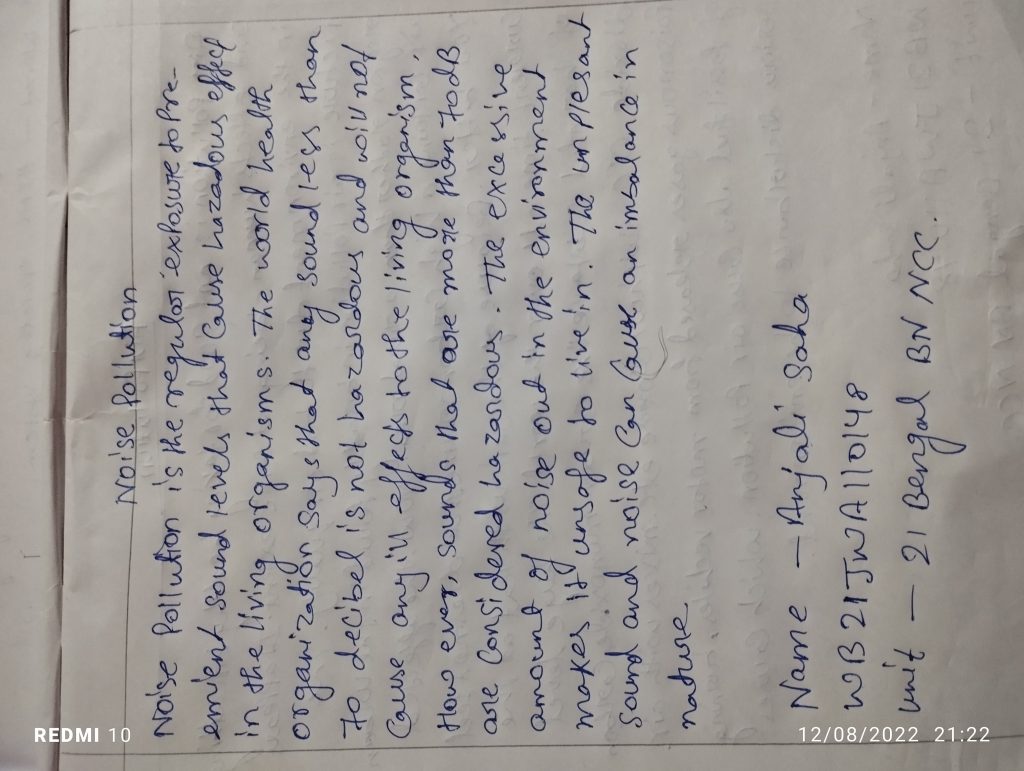 Noise Pollution
Noise Pollution is the regular exposure to pre-
emient sound levels that cause hazadous effect
in the living organisms. The world health
organization says that any sound less than
70 decibel is not hazardous and will not
cause any ill effects to the living organism.
How ever, sounds that are more than 70dB
are considered hazardous. The excessive
amount of noise out in the environment
makes it unsafe to live in. The unplesant
sound and noise can cause an imbalance in
nature
Name - Anjali Saha
WB21JWA110148
unit - 21 Bengal BN NCC.
REDMI 10
12/08/2022 21:22